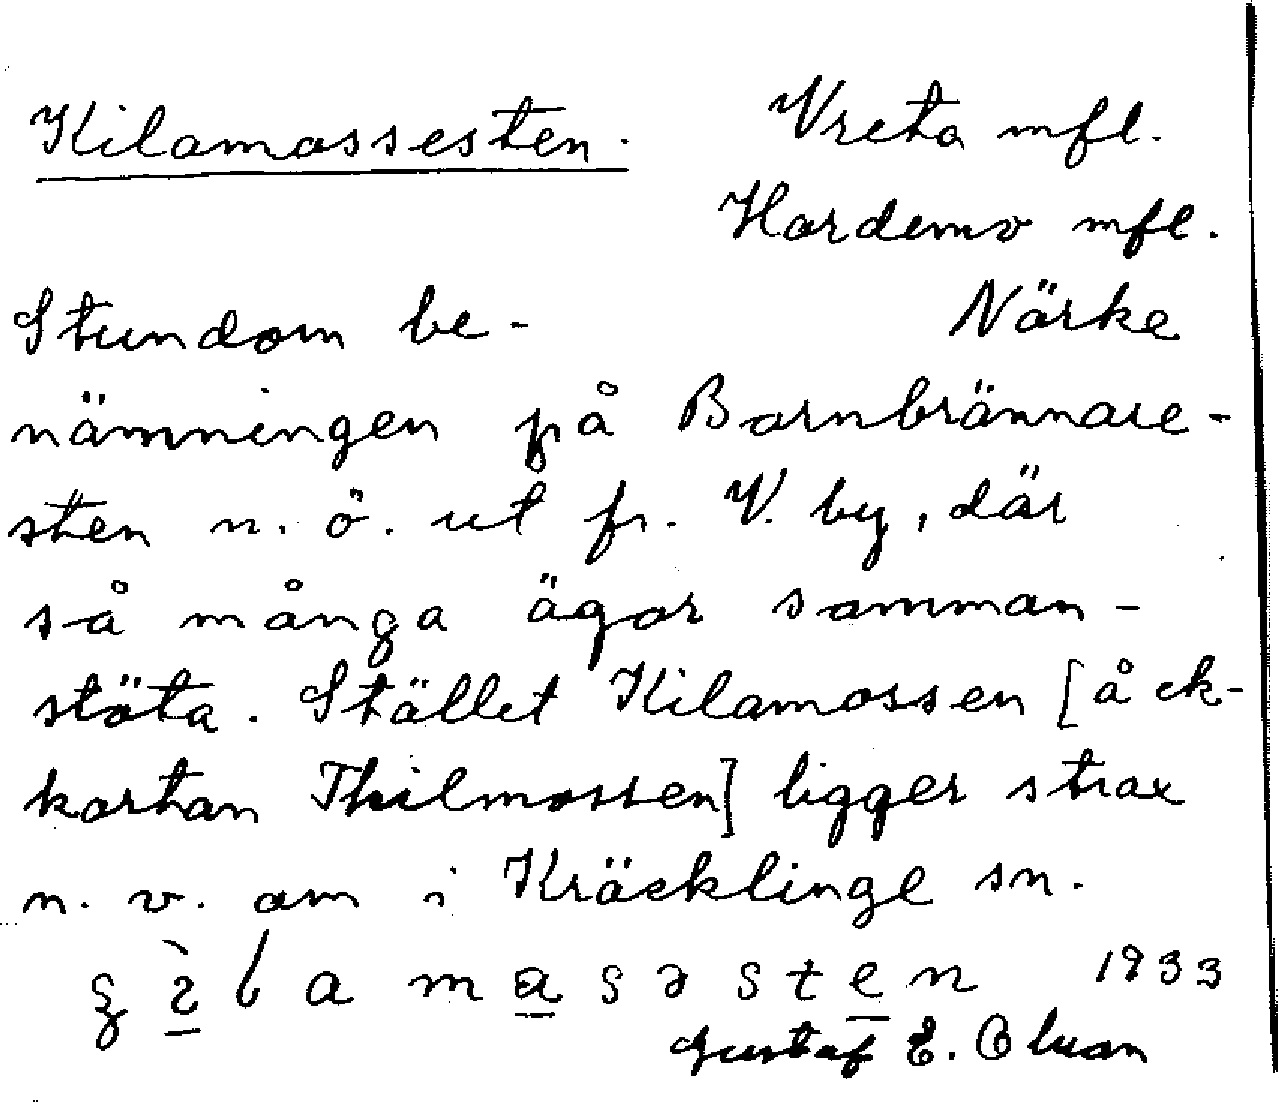 Kilamossesten.
Vreta mfl.
Hardemo mfl.
Närke
Stundom be-
nämningen på Barnbrännare-
sten n. ö. ut fr. V. by, där
så många ägor samman-
stöta. Stället Kilamossen [å ek-
kartan Thilmossen] ligger strax
n. v. om i Kräcklinge sn.
1933
Gustaf E. Olson